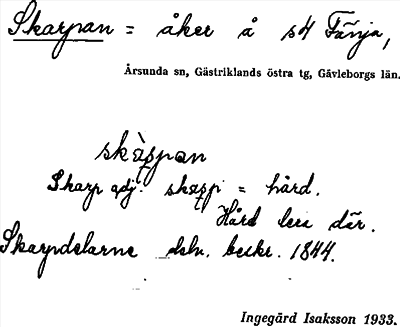 Skarpan = åker å s4 Fänja,
Årsunda sn, Gästriklands östra tg, Gävleborgs län.
skàspan
Skarp adj. skaspi = hård.
Hård lera där.
Skarpdelarne deln. beskr. 1844.
Ingegärd Isaksson 1933.